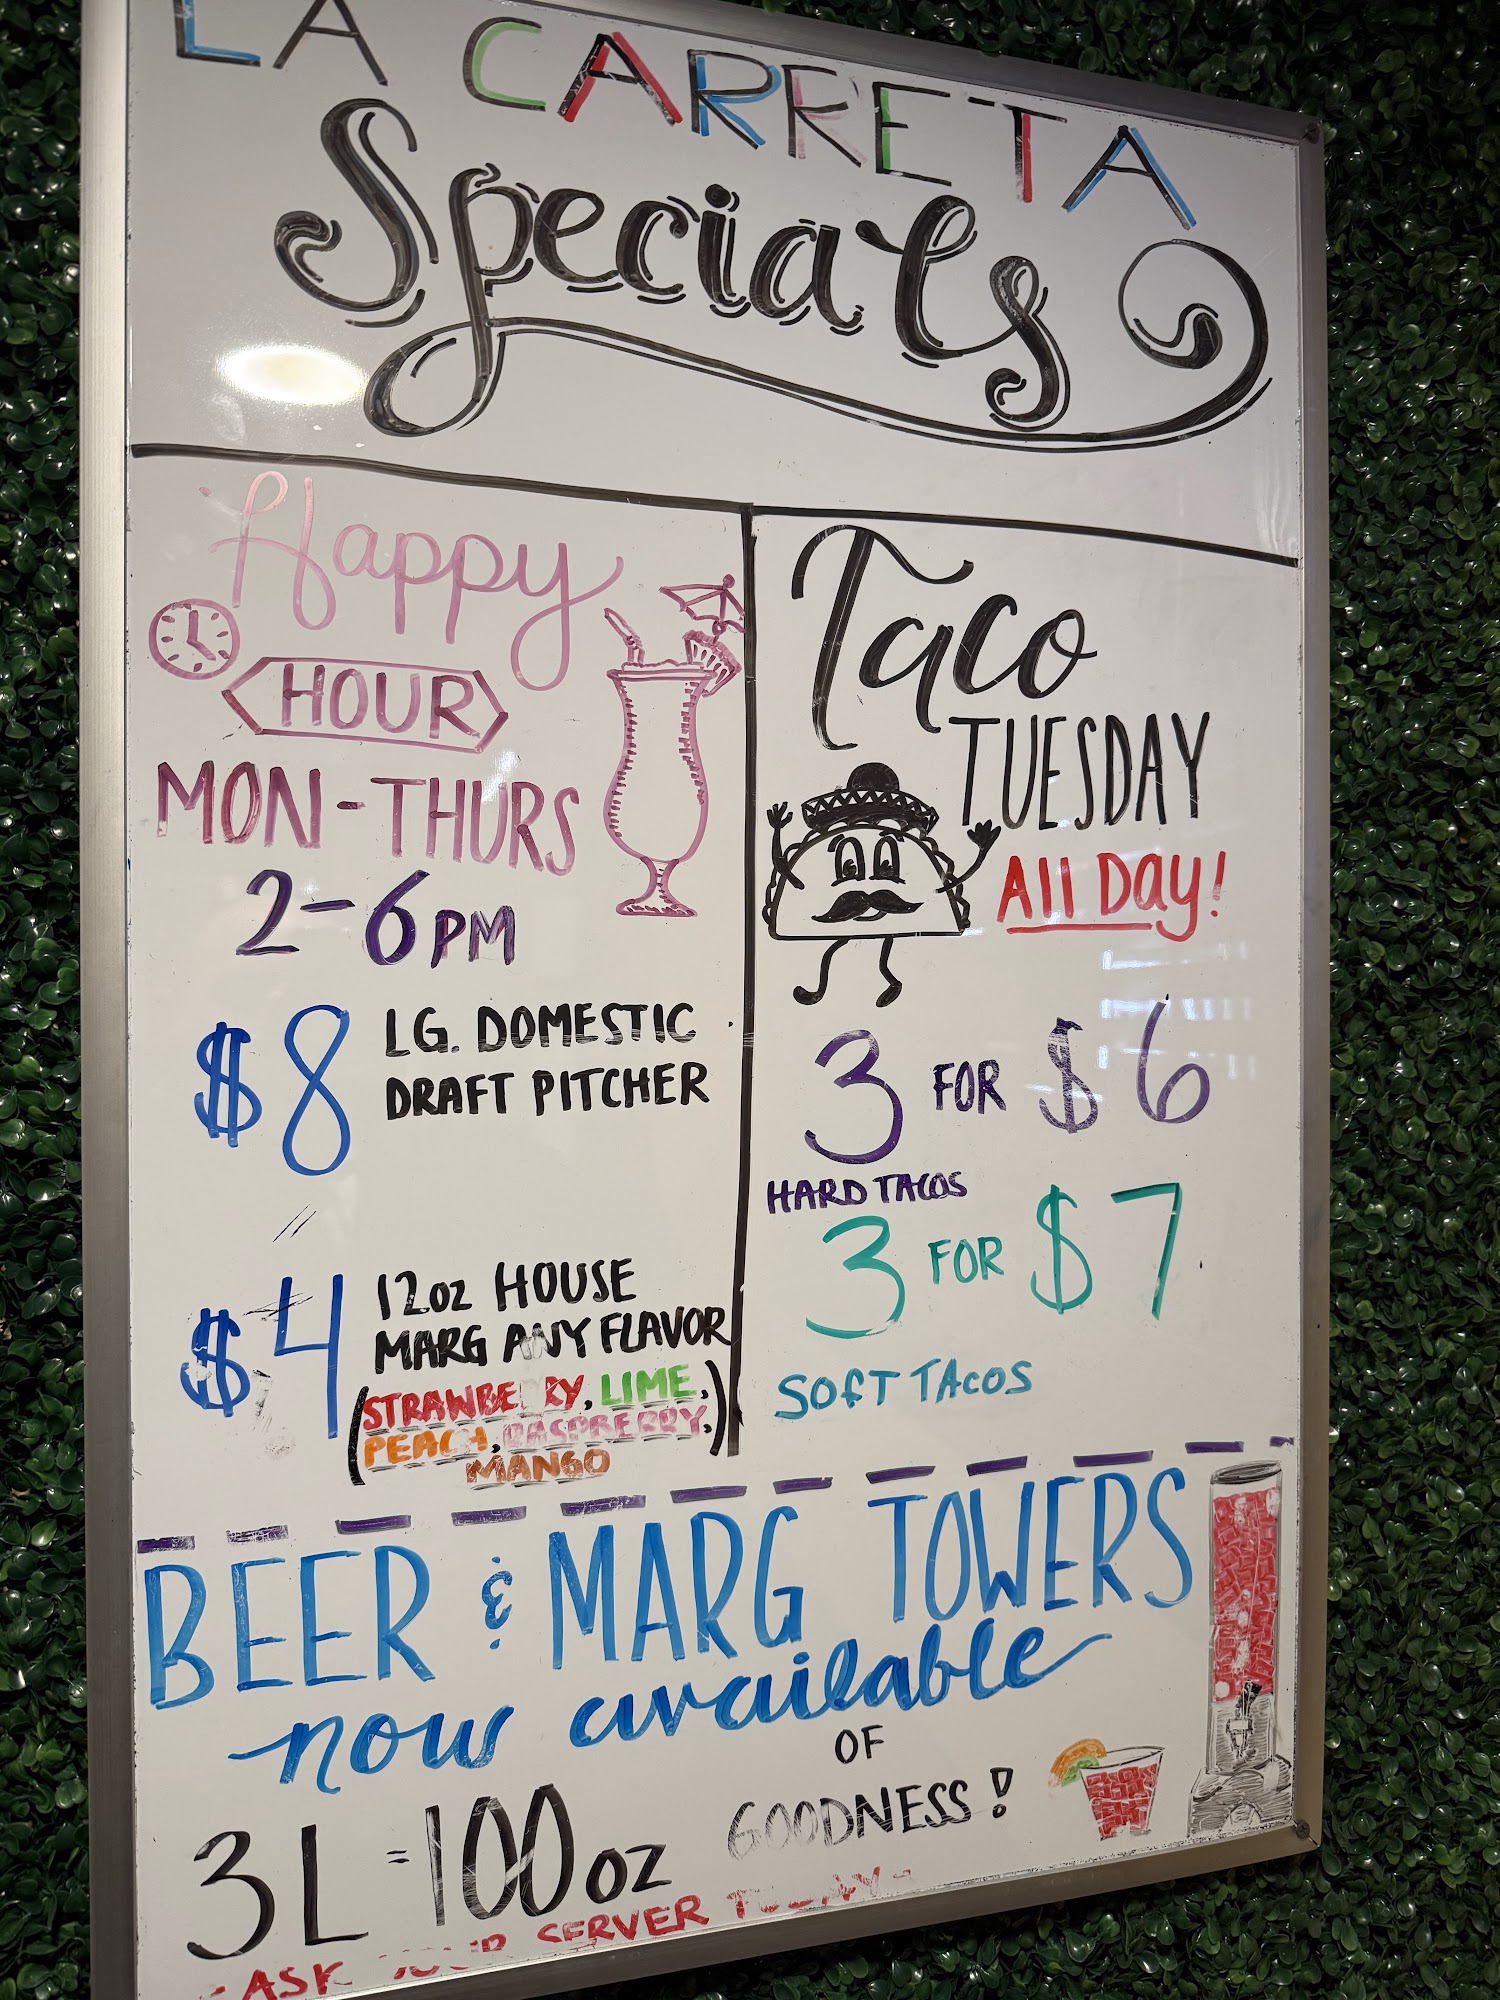 LA CARRETA
Specials
Happy
HOUR
MON-THURS
2-6PM
$8 LG. DOMESTIC
DRAFT PITCHER
$4 12oz HOUSE
MARG ANY FLAVOR
(STRAWBERRY, LIME,
PEACH, RASPBERRY,
MANGO)
Taco
TUESDAY
All Day!
3 FOR $6
HARD TACOS
3 FOR $7
SOFT TACOS
BEER & MARG TOWERS
now available
3L = 100oz
OF
GOODNESS!
- ASK YOUR SERVER TODAY -